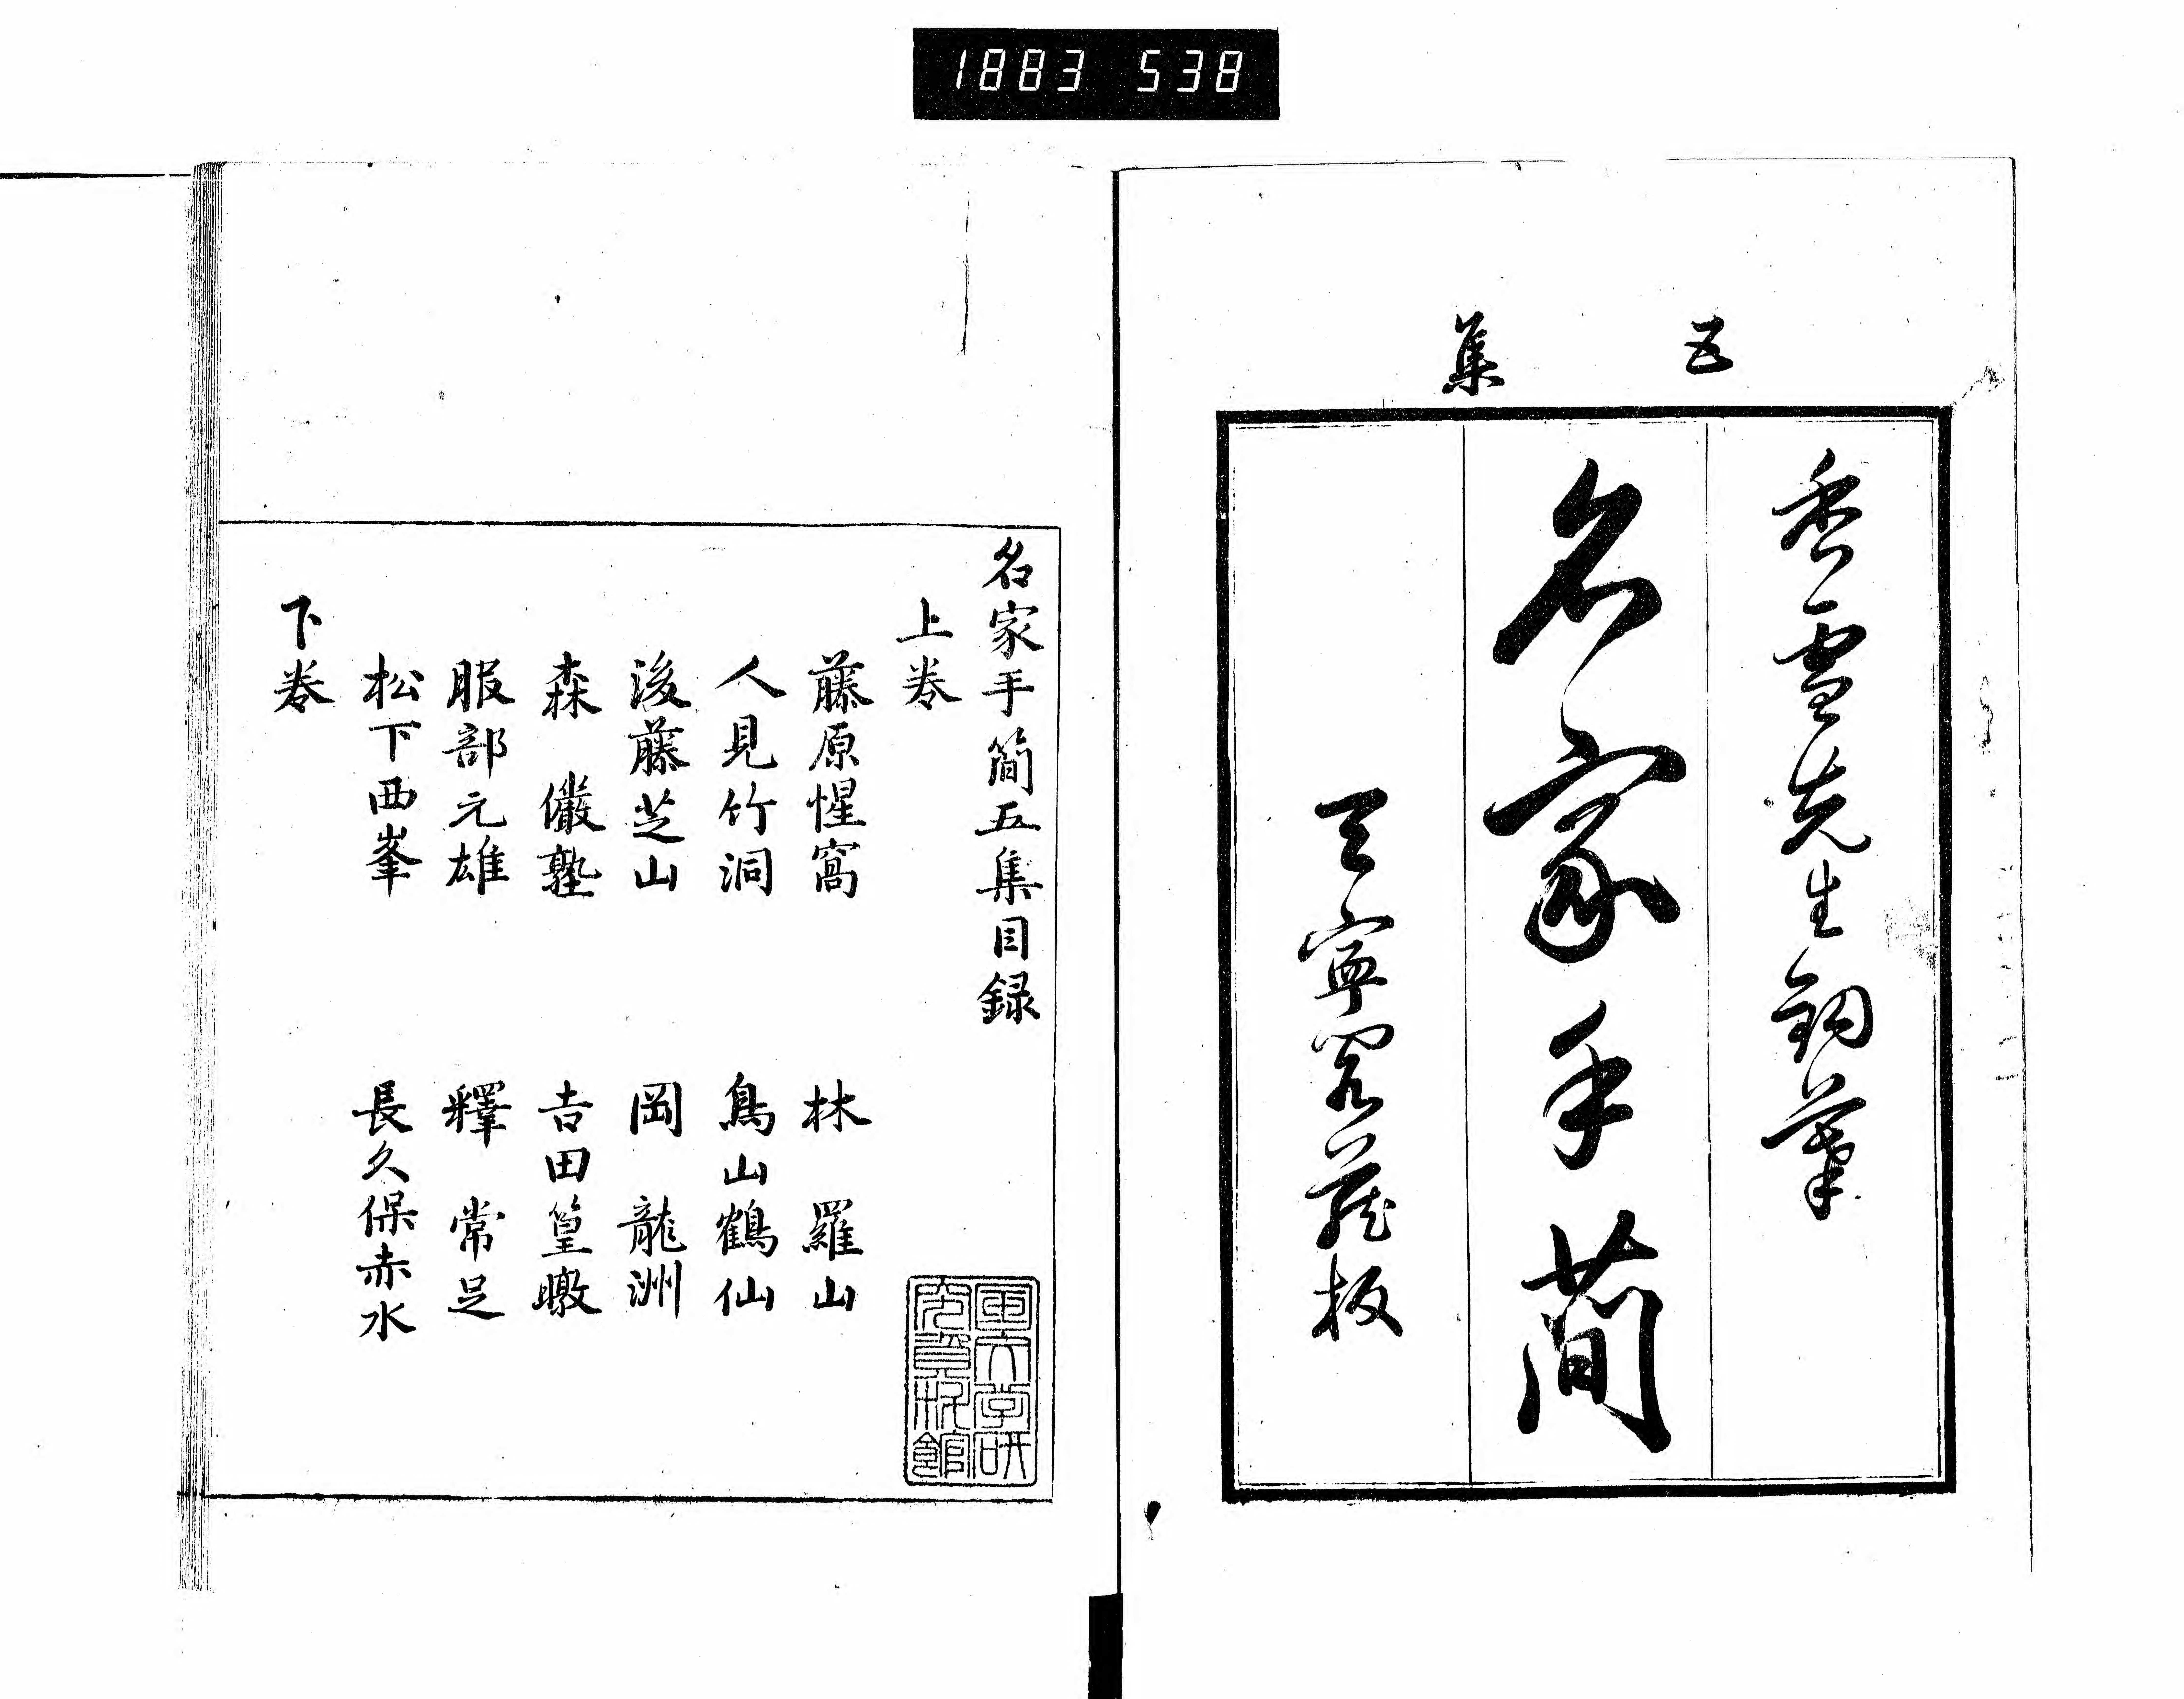 1883 538
五集
香雪先生鉤摹
名家手簡
藏板
名家手簡五集目録
上巻
藤原惺窩 林羅山
人見竹洞 鳥山鶴仙
後藤芝山 岡龍洲
森儼塾 吉田篁暾
服部元雄 釋常足
松下西峯 長久保赤水
下巻
国文学研
究資料館